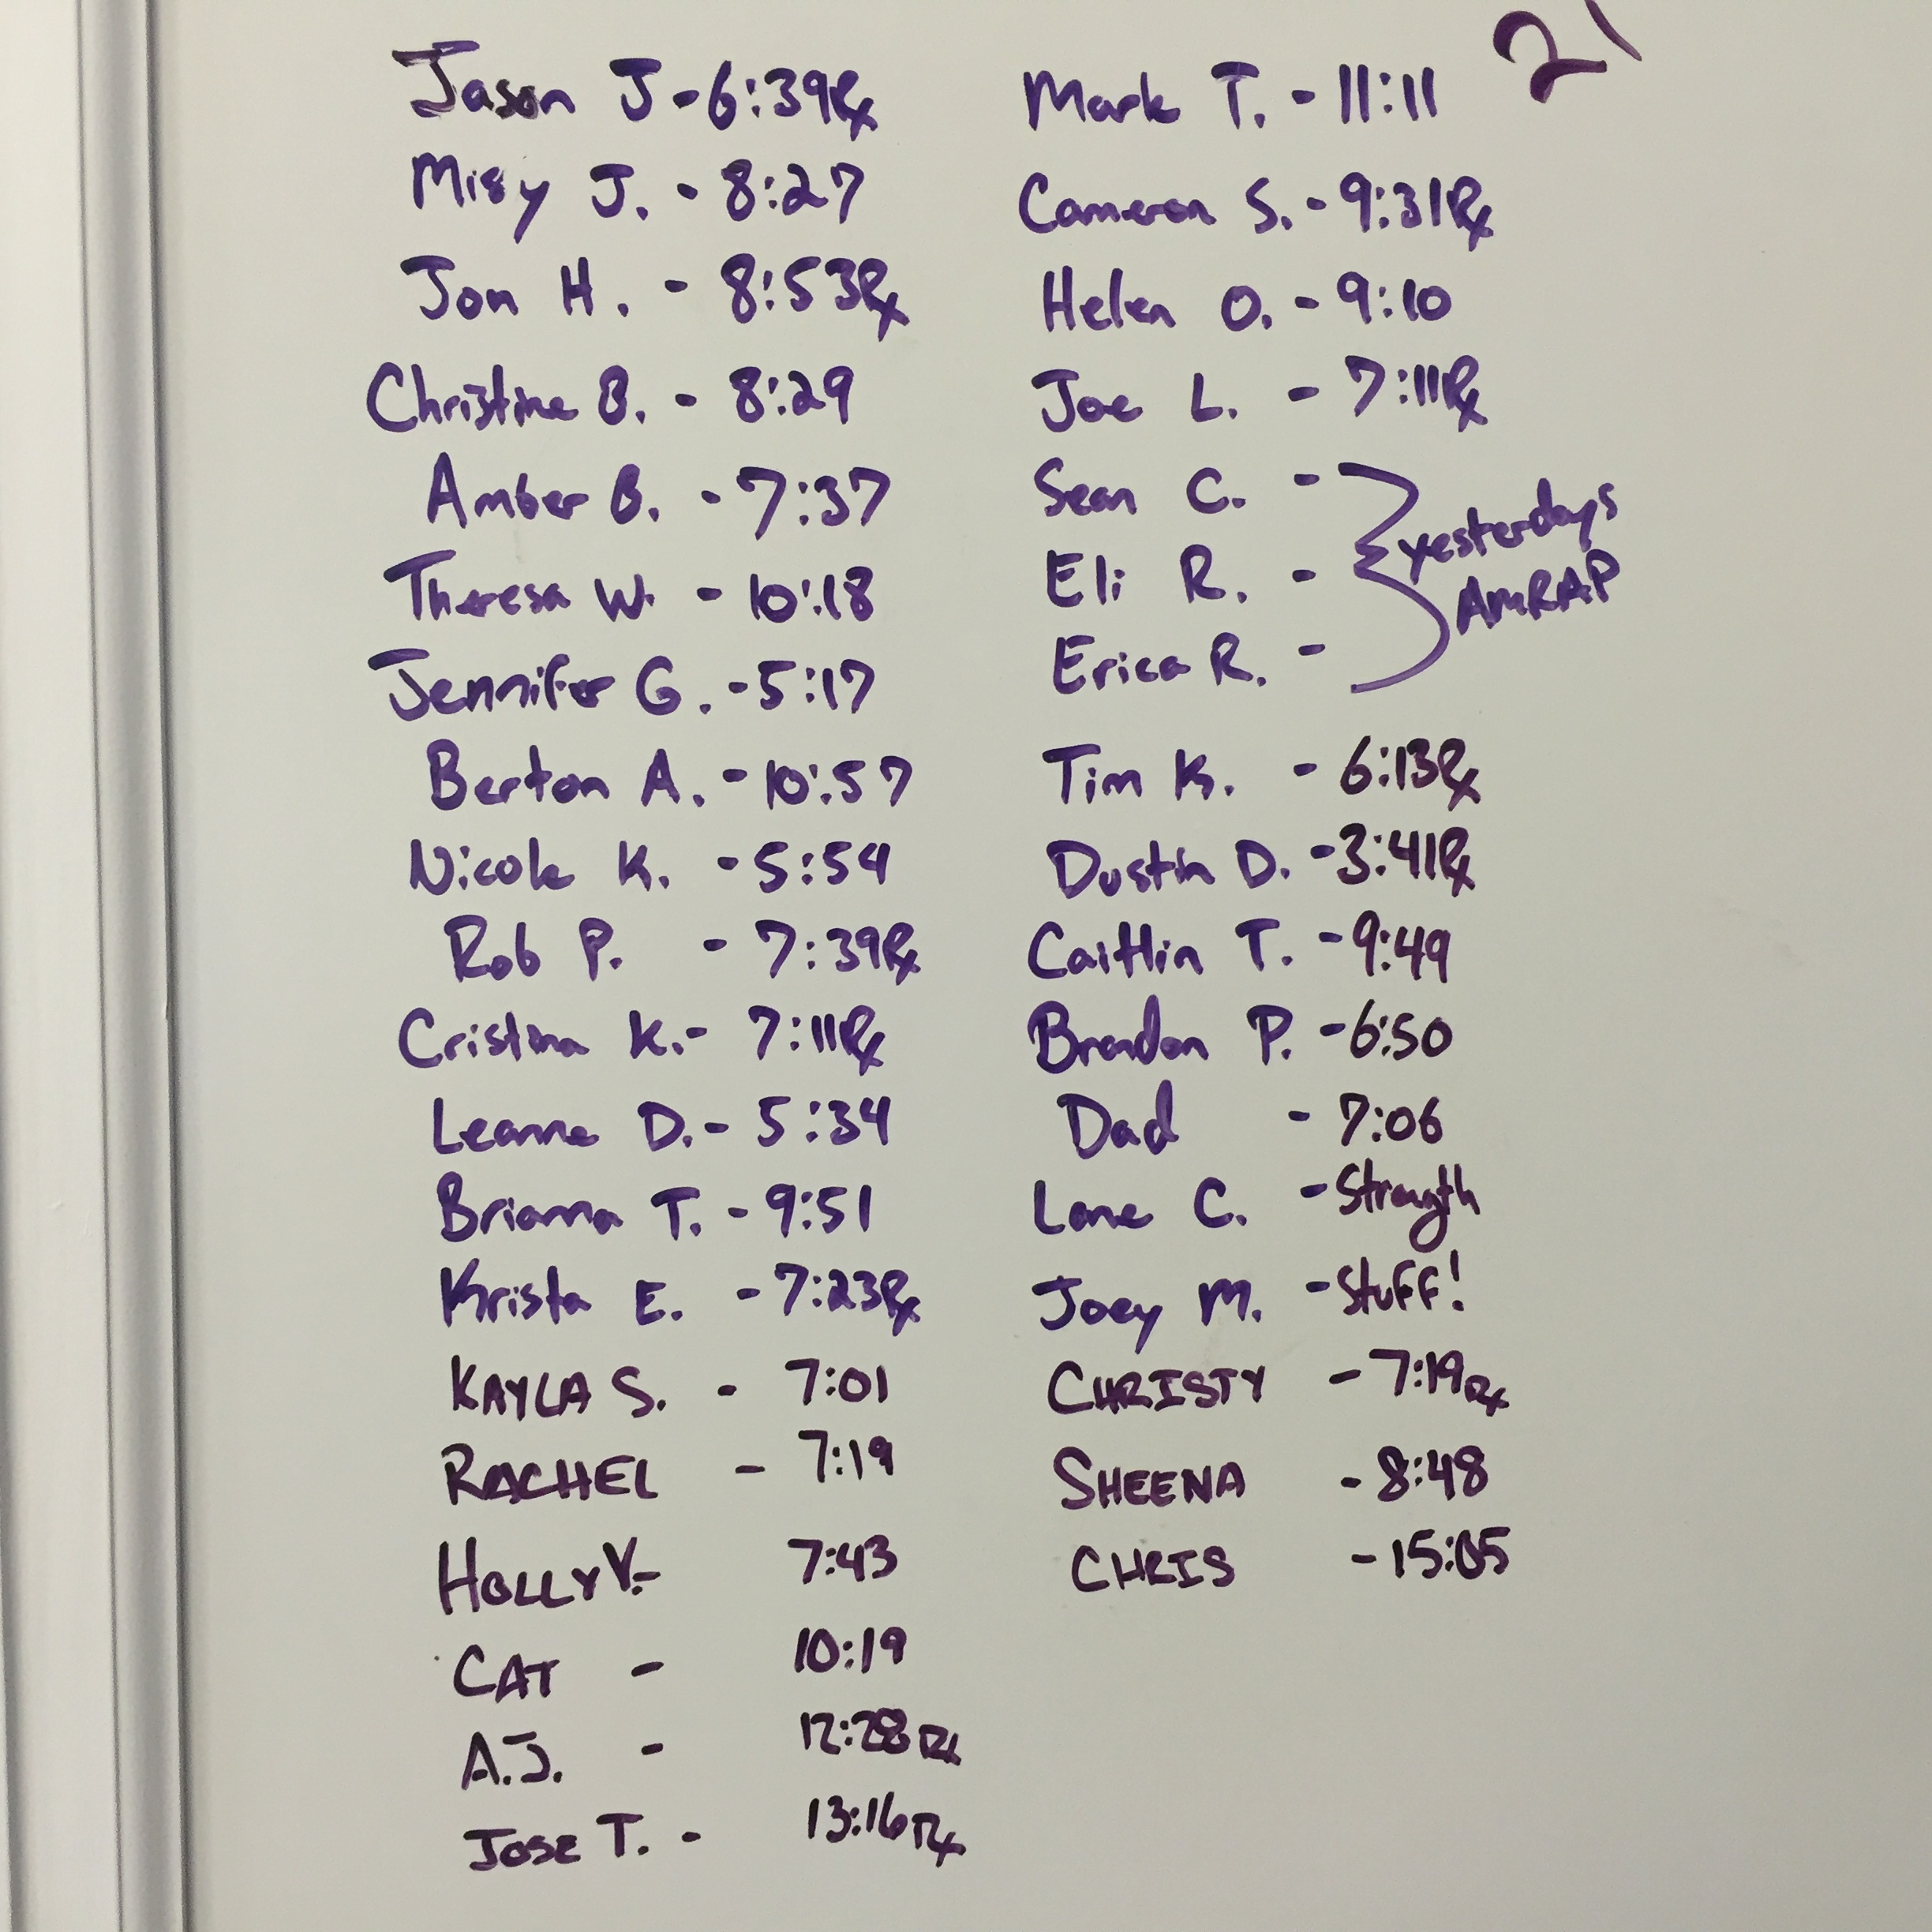 Jason J - 6:39Rx
Misy J. - 8:27
Jon H. - 8:53Rx
Christine B. - 8:29
Amber B. - 7:37
Theresa W. - 10:18
Jennifer G. - 5:17
Berton A. - 10:57
Nicole K. - 5:54
Rob P. - 7:39Rx
Cristina K. - 7:11Rx
Leanne D. - 5:34
Brianna T. - 9:51
Krista E. - 7:23Rx
KAYLA S. - 7:01
RACHEL - 7:19
HOLLY V. - 7:43
CAT - 10:19
A.J. - 12:28 Rx
JOSE T. - 13:16 Rx
21
Mark T. - 11:11
Cameron S. - 9:31Rx
Helen O. - 9:10
Joe L. - 7:11Rx
Sean C. -
Eli R. -
Erica R. -
yesterdays
AMRAP
Tim K. - 6:13Rx
Dustin D. - 3:41Rx
Caitlin T. - 9:49
Brendan P. - 6:50
Dad - 7:06
Lane C. - Strength
Joey M. - Stuff!
CHRISTY - 7:19 Rx
SHEENA - 8:48
CHRIS - 15:05